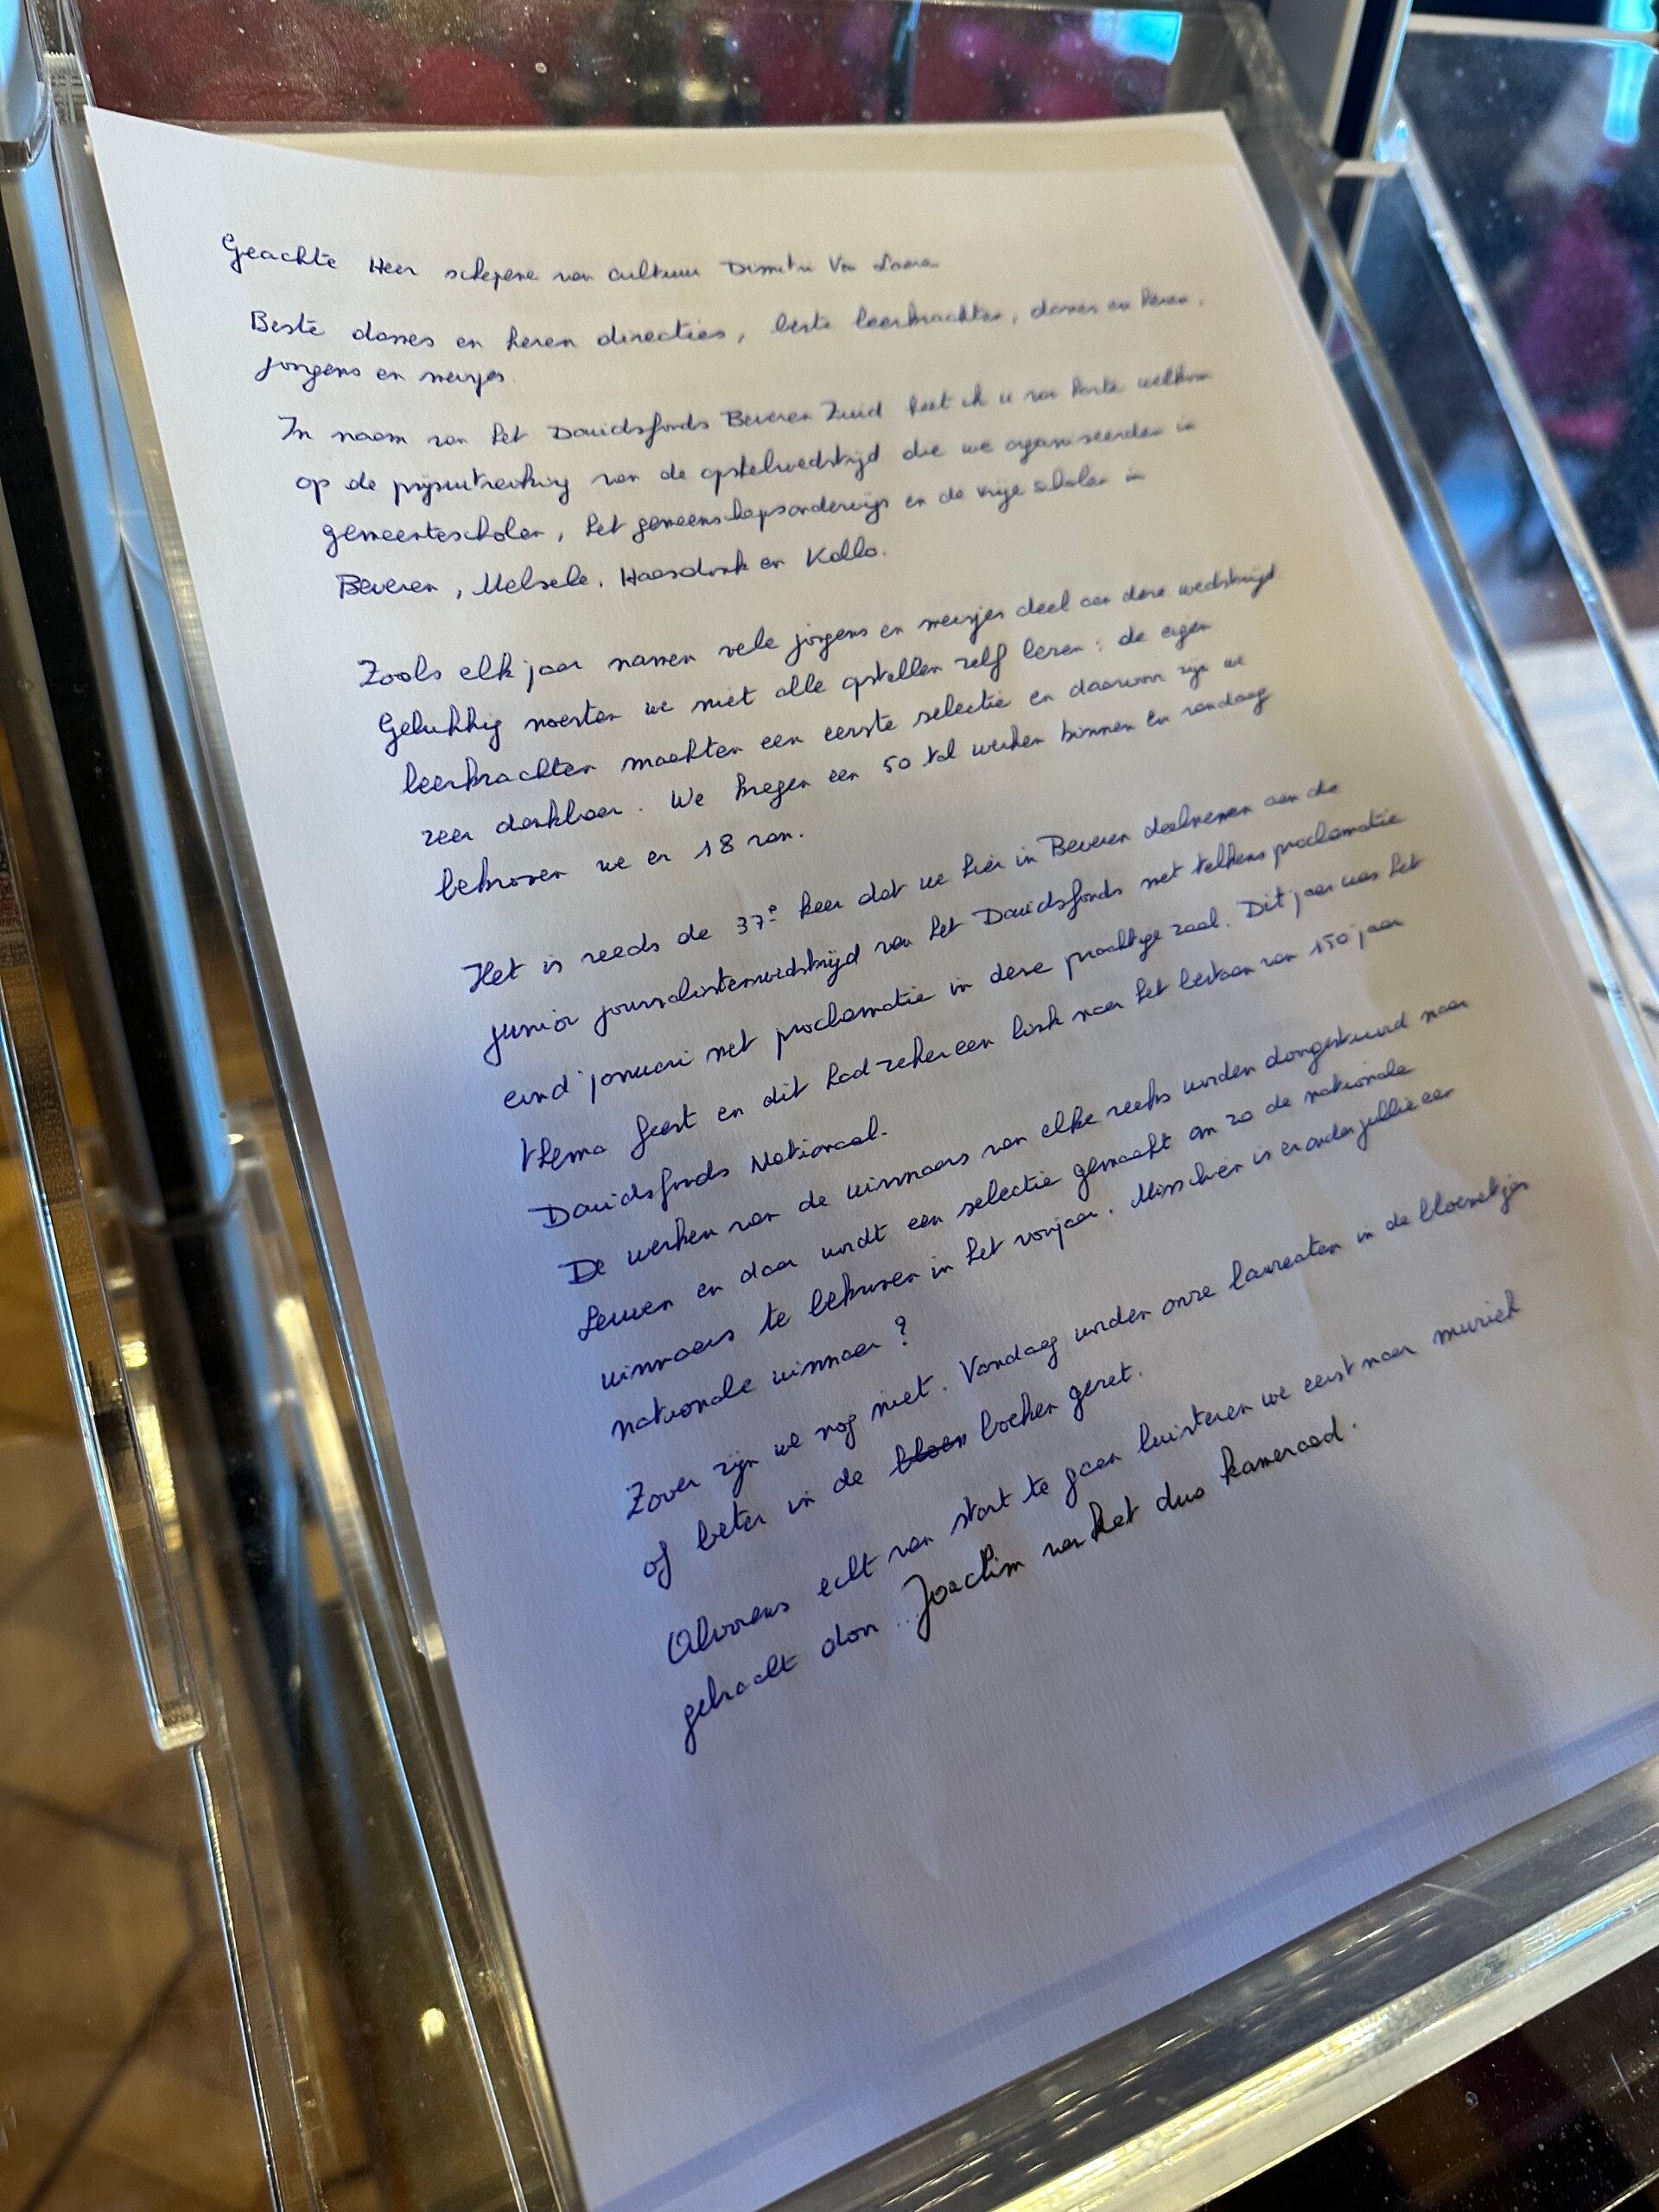 Geachte Heer schepene van cultuur Dimitri Van Laere
Beste dames en heren directies, beste leerkrachten, dames en heren,
jongens en meisjes.
In naam van het Davidsfonds Beveren Zuid heet ik u van harte welkom
op de prijsuitreiking van de opstelwedstrijd die we organiseerden in
gemeentescholen, het gemeenschapsonderwijs en de vrije scholen in
Beveren, Melsele, Haasdonk en Kallo.
Zoals elk jaar namen vele jongens en meisjes deel aan deze wedstrijd
Gelukkig moesten we niet alle opstellen zelf lezen: de eigen
leerkrachten maakten een eerste selectie en daarvoor zijn we
zeer dankbaar. We kregen een 50 tal werken binnen en vandaag
bekronen we er 18 van.
Het is reeds de 37e keer dat we hier in Beveren deelnemen aan de
junior journalistenwedstrijd van het Davidsfonds met telkens proclamatie
eind januari met proclamatie in deze prachtige zaal. Dit jaar was het
thema feest en dit had zeker een link naar het bestaan van 150 jaar
Davidsfonds Nationaal.
De werken van de winnaars van elke reeks worden doorgestuurd naar
Leuven en daar wordt een selectie gemaakt om zo de nationale
winnaars te bekronen in het voorjaar. Misschien is er onder jullie een
nationale winnaar?
Zover zijn we nog niet. Vandaag worden onze laureaten in de bloemetjes
of beter in de bloem boeken gezet.
Alvorens echt van start te gaan luisteren we eerst naar muziek
gebracht door ... Joachim van het duo kameraad.